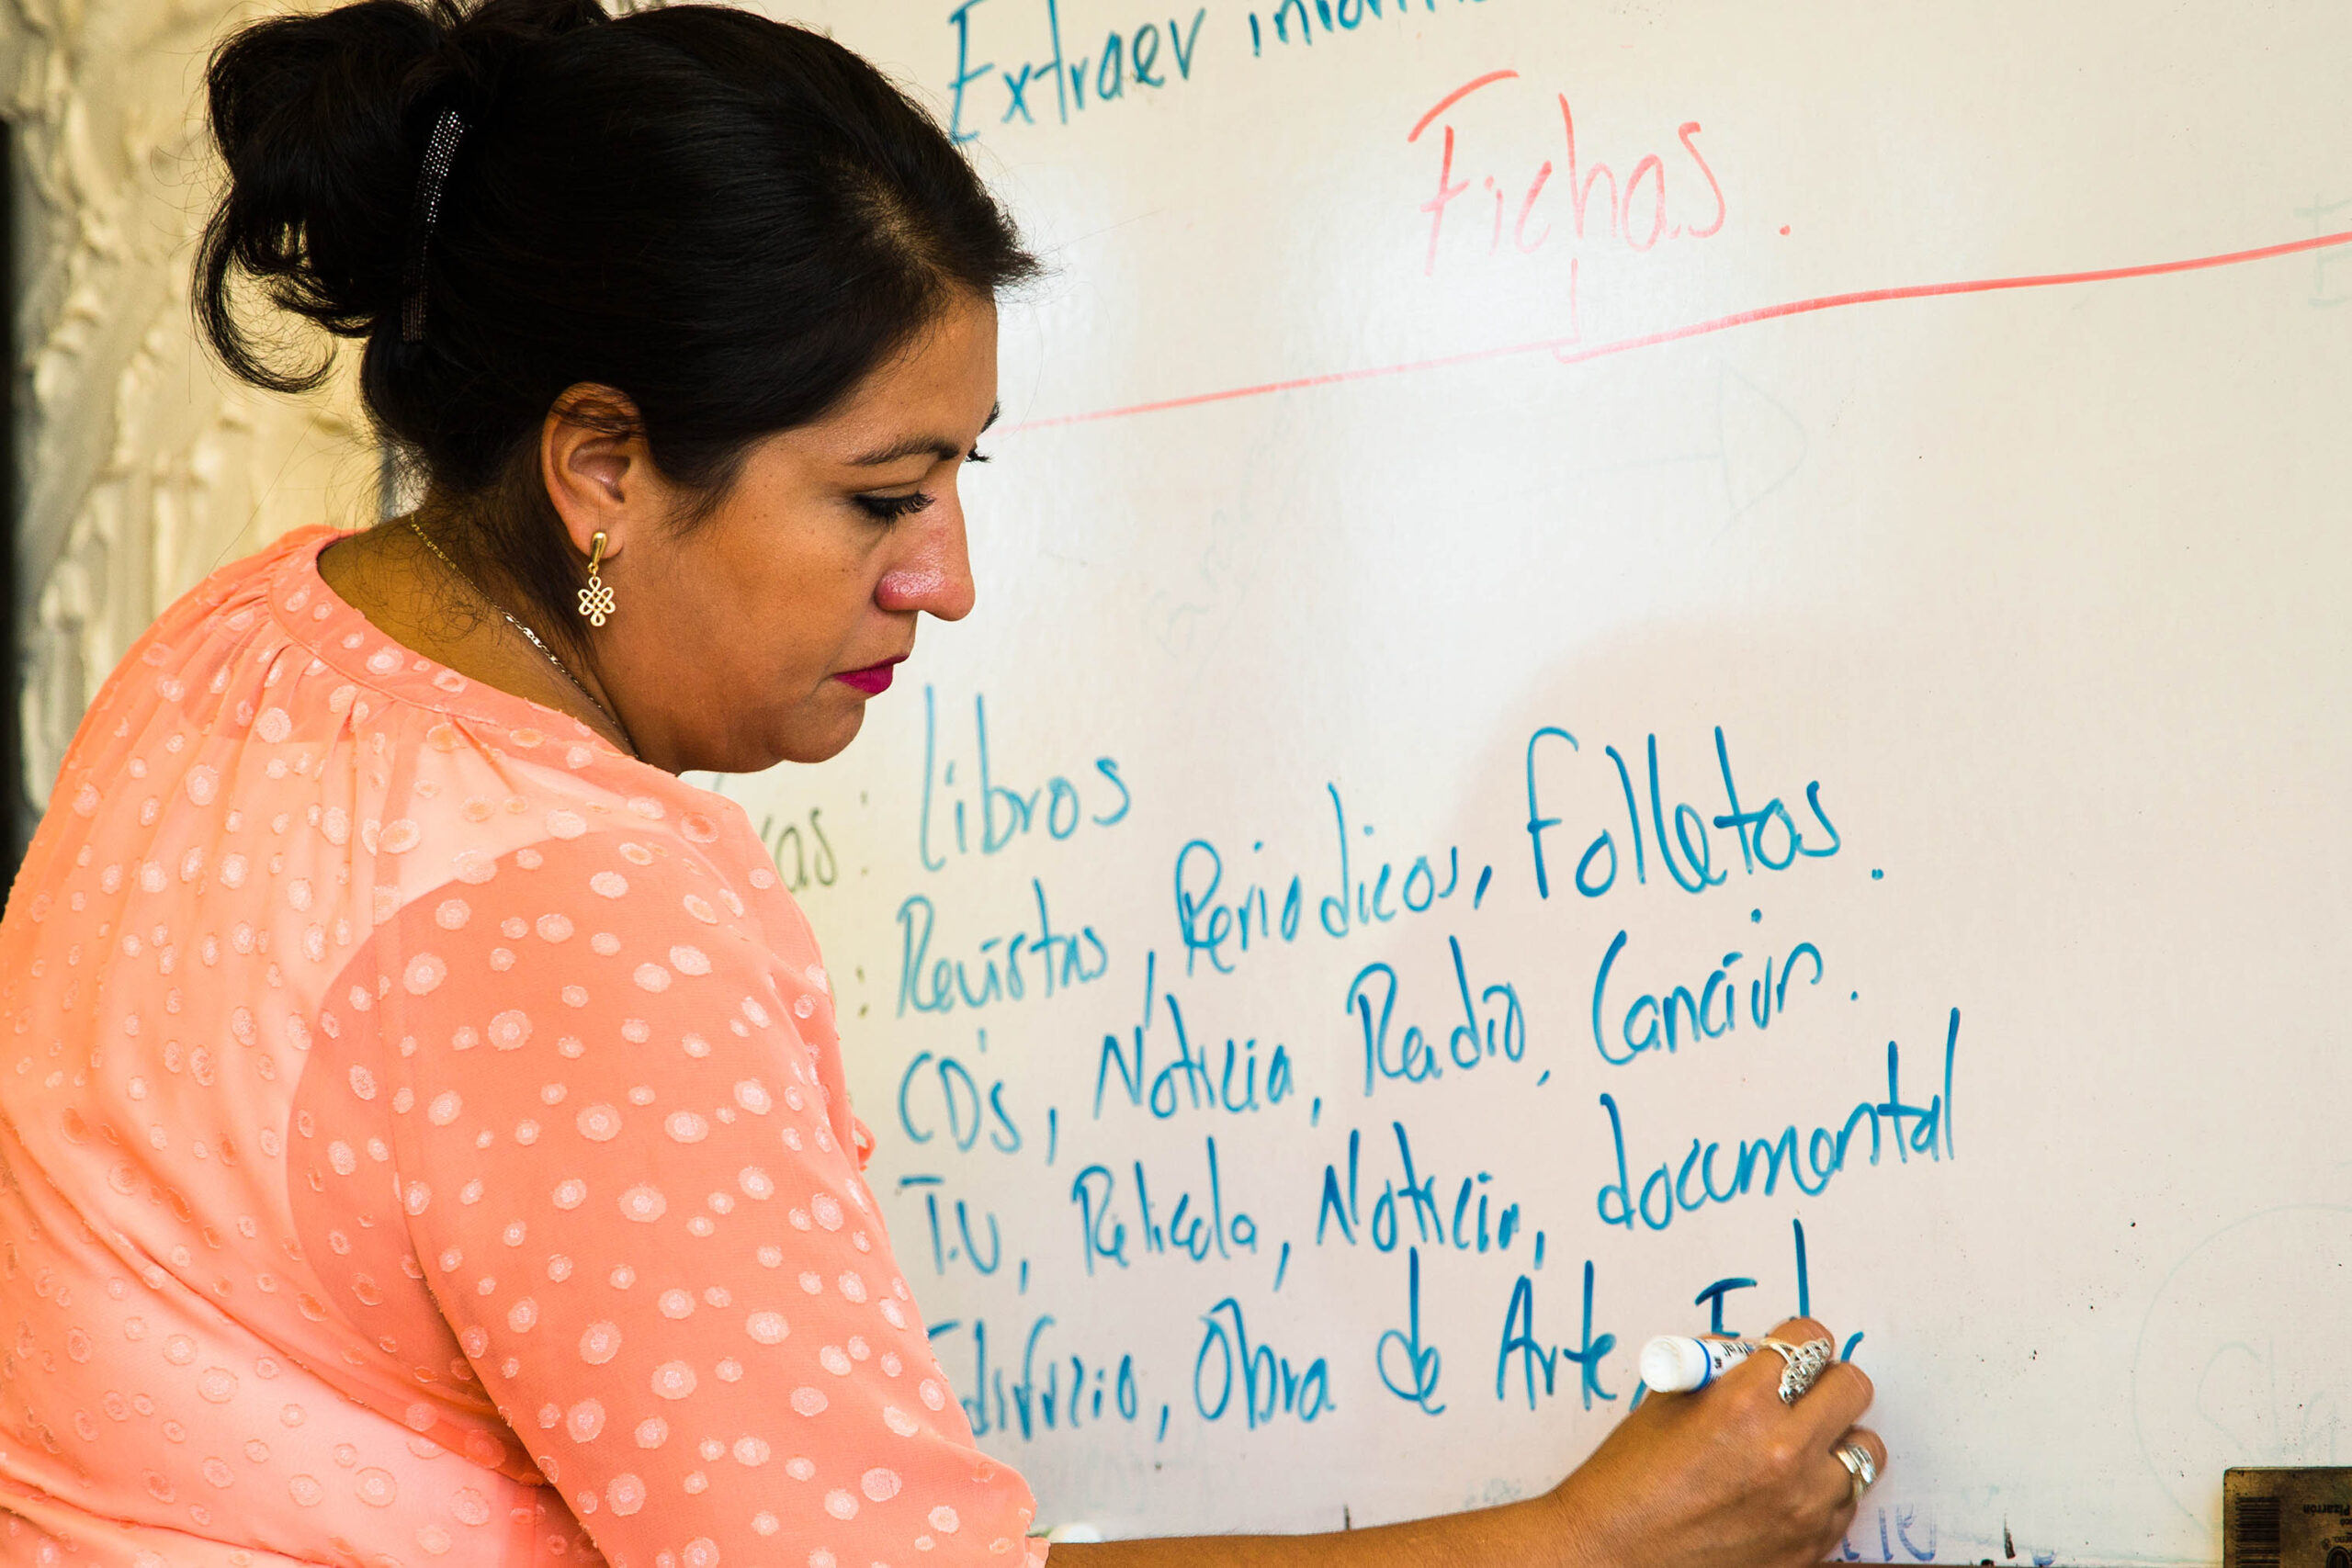 Extraer
Fichas.
: Libros
: Revistas, Periodicos, Folletos.
CD's, Noticia, Radio, Cancion.
T.V, Pelicula, Noticia, documental
Edificio, Obra de Arte,